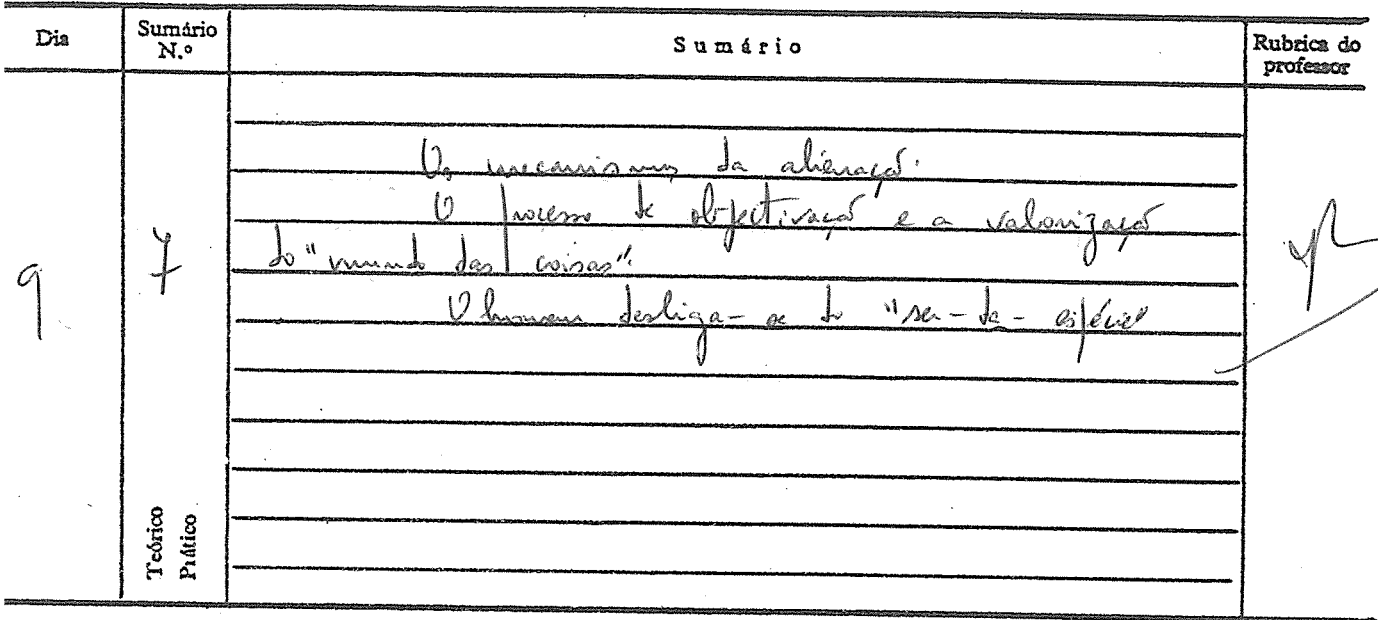 Dia
Sumário N.º
Sumário
Rubrica do professor
9
7
Os mecanismos da alienação.
O processo de objectivação e a valorização
do "mundo das coisas".
O homem desliga-se do "ser-da-espécie"
Teórico
Prático